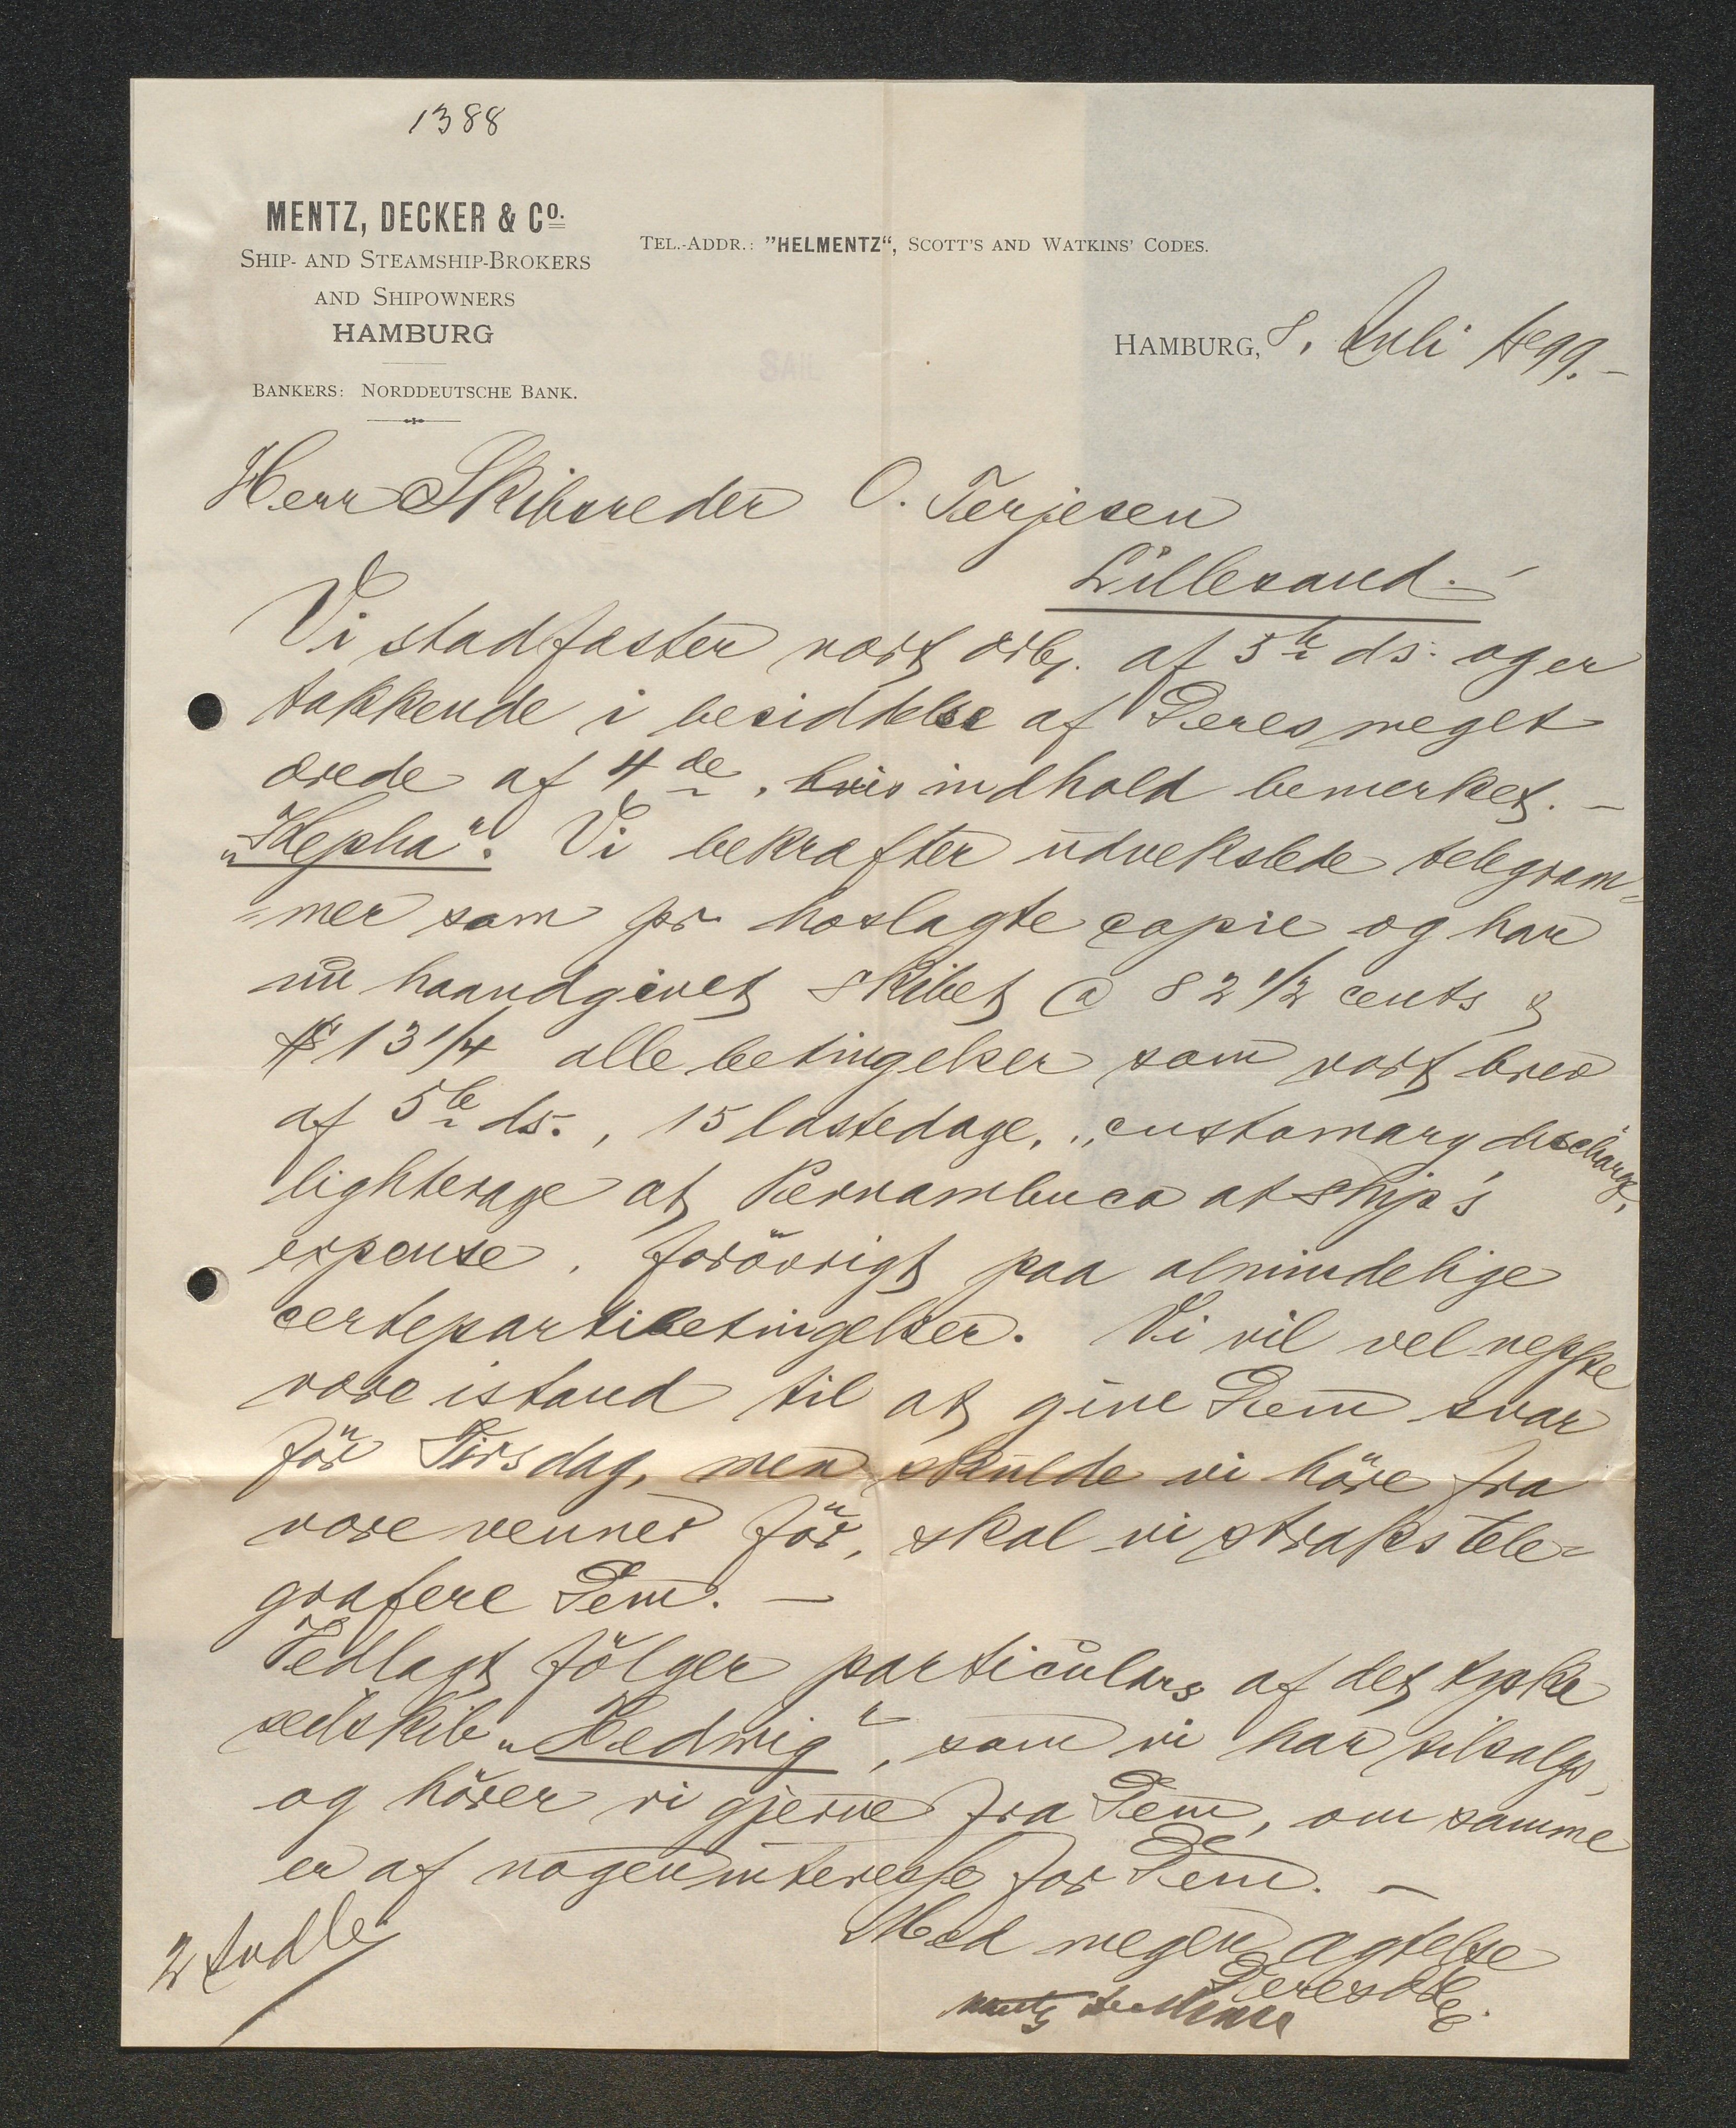 1388
MENTZ, DECKER & Co.
SHIP- AND STEAMSHIP-BROKERS
AND SHIPOWNERS
HAMBURG
BANKERS: NORDDEUTSCHE BANK.
TEL.-ADDR.: "HELMENTZ“, SCOTT'S AND WATKINS' CODES.
HAMBURG, 8. Juli 1899.-
Herr Skibsreder O. Terjesen
Lillesand.-
Vi stadfæster vort ærbj. af 5te ds. og er
takkende i besiddelse af Deres meget
ærede af 4de, hvis indhold bemerket. -
„Hepha". Vi bekræfter udvekslede telegram=
=mer som pr hoslagte copie og har
nu haandgivet skibet @ 82 1/2 cents &
$ 13 1/4 alle betingelser som vort brev
af 5te ds., 15 lastedage, „customary discharge,
lighterage at Pernambuco at ship's
expense, forövrigt paa almindelige
certepartibetingelser. Vi vil vel neppe
være istand til at give Dem svar
för Tirsdag, men skulde vi höre fra
vore venner för, skal vi straks tele=
grafere Dem. -
Vedlagt fölger particulars af det tyske
seilskib „Hedwig", som vi har tilsalgs,
og hörer vi gjerne fra Dem, om samme
er af nogen interesse for Dem. -
Med megen agtelse
Deres
2